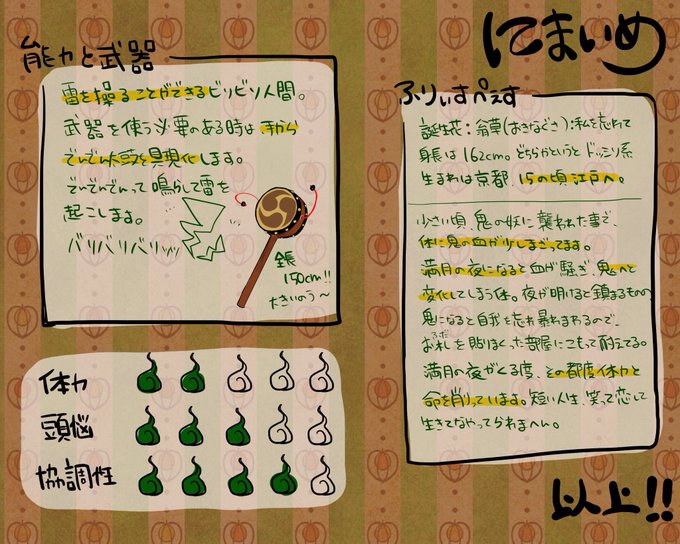 にまいめ
能力と武器
雷を操ることができるビリビリ人間。
武器を使う必要のある時は手から
でんでん太鼓を具現化します。
でいでいでんって鳴らして雷を
起こします。
バリバリバリィィ
全長
150cm!!
大きいのう〜
体力
頭脳
協調性
ふりぃすぺえす
誕生花:翁草(おきなぐさ):私を忘れて
身長は162cm。どちらかというとドッシリ系
生まれは京都、15の頃江戸へ。
小さい頃、鬼の妖に襲われた事で、
体に鬼の血が少しまざってます。
満月の夜になると血が騒ぎ、鬼へと
変化してしまう体。夜が明けると鎮まるものの、
鬼になると自我を忘れ暴れまわるので、
お札を貼りまくった部屋にこもって耐えてる。
ふだ
満月の夜がくる度、その都度体力と
命を削っています。短い人生、笑って恋して
生きてなやってられまへん。
以上!!